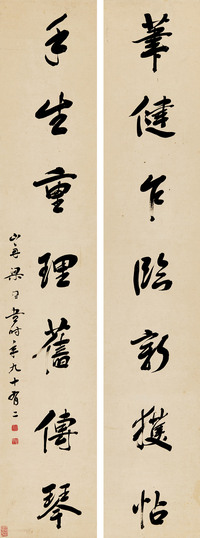 筆健乍臨新獲帖
手生重理舊傳琴
山舟梁同書時年九十有二